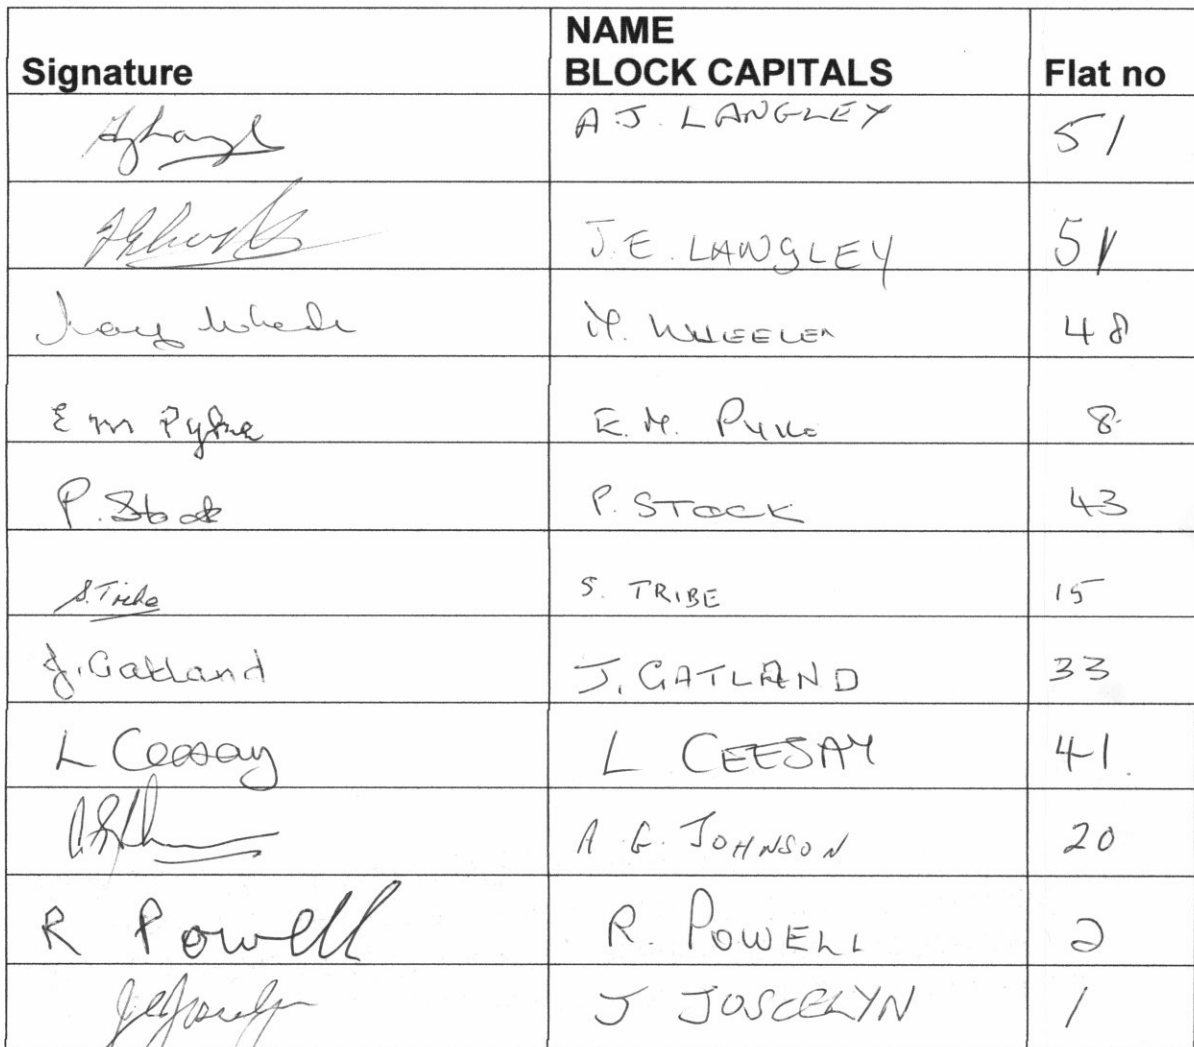 NAME
Signature BLOCK CAPITALS Flat no
A.J. LANGLEY 51
J.E. LANGLEY 51
M. WHEELER 48
E M Pyke E. M. PYKE 8
P. Stock P. STOCK 43
S. Tribe S. TRIBE 15
J. Gatland J. GATLAND 33
L Ceesay L CEESAY 41
A G. JOHNSON 20
R Powell R. POWELL 2
J JOSCELYN 1